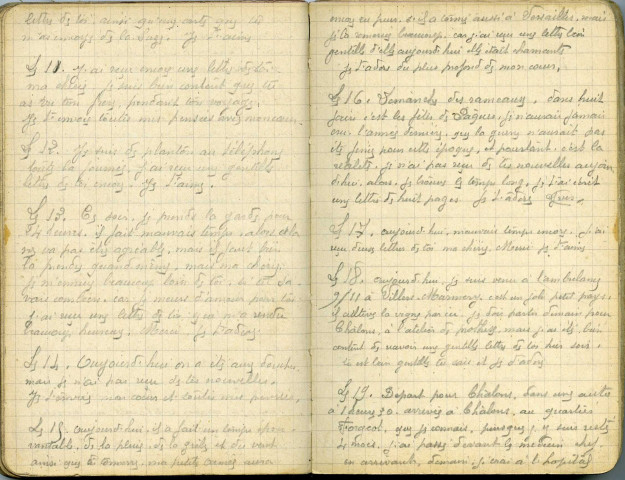 lettre de toi, ainsi qu'une carte que tu
m'as envoyé de la Suze. Je t'aime
Le 11. J'ai reçu encore une lettre de toi
ma chérie je suis bien content que tu
as fait bon voyage.
Je t'envoie toutes mes pensées
Le 12. Je suis de planton au téléphone
toute la journée. J'ai reçu une gentille
lettre de toi encore. Je t'aime.
Le 13. Ce soir, je prends la garde pour
24 heures. il fait mauvais temps, alors cela
ne va pas être agréable, mais il faut bien
la prendre quand même, mais ma chérie
je m'ennuie beaucoup loin de toi. si tu sa-
vais combien, car je meurs d'amour pour toi
j'ai reçu une lettre de toi qui m'a rendu
beaucoup heureux. Merci. Je t'adore
Le 14. Aujourd'hui on a été aux douches
mais je n'ai pas reçu de tes nouvelles.
Je t'envoie mon cœur et toutes mes pensées.
Le 15. aujourd'hui, il a fait un temps épou-
vantable, de la pluie, de la grêle et du vent
ainsi que le tonnerre, ma petite
encore un peu. à Versailles, mais
je la remercie beaucoup, car j'ai reçu une lettre bien
gentille d'elle aujourd'hui elle était charmante
je t'adore du plus profond de mon cœur.
Le 16. Dimanche des rameaux, dans huit
jours c'est les fêtes de Pâques, je n'aurais jamais
cru l'année dernière, que la guerre n'aurait pas
été finie pour cette époque, et pourtant, c'est la
réalité, je n'ai pas reçu de tes nouvelles aujour
d'hui, alors, je trouve le temps long, je t'ai écrit
une lettre de huit pages. Je t'adore
Le 17. aujourd'hui, mauvais temps encore. J'ai
reçu deux lettres de toi ma chérie. Merci je t'aime
Le 18. aujourd'hui, je suis venu à l'ambulance
9/11 à Villers Marmery, c'est un joli petit pays.
cultive la vigne par ici. je dois partir demain pour
Châlons, à l'atelier de prothèse, mais j'ai été bien
content de recevoir une gentille lettre de toi hier soir.
tu es bien gentille ma chérie et je t'adore
Le 19. Départ pour Châlons, dans une auto
à 1 heure 30. arrivée à Châlons, au quartier
Forgeot, que je connais, puisque je suis resté
4 mois. j'ai passé devant le médecin chef
en arrivant, demain, j'irai à l'hôpital